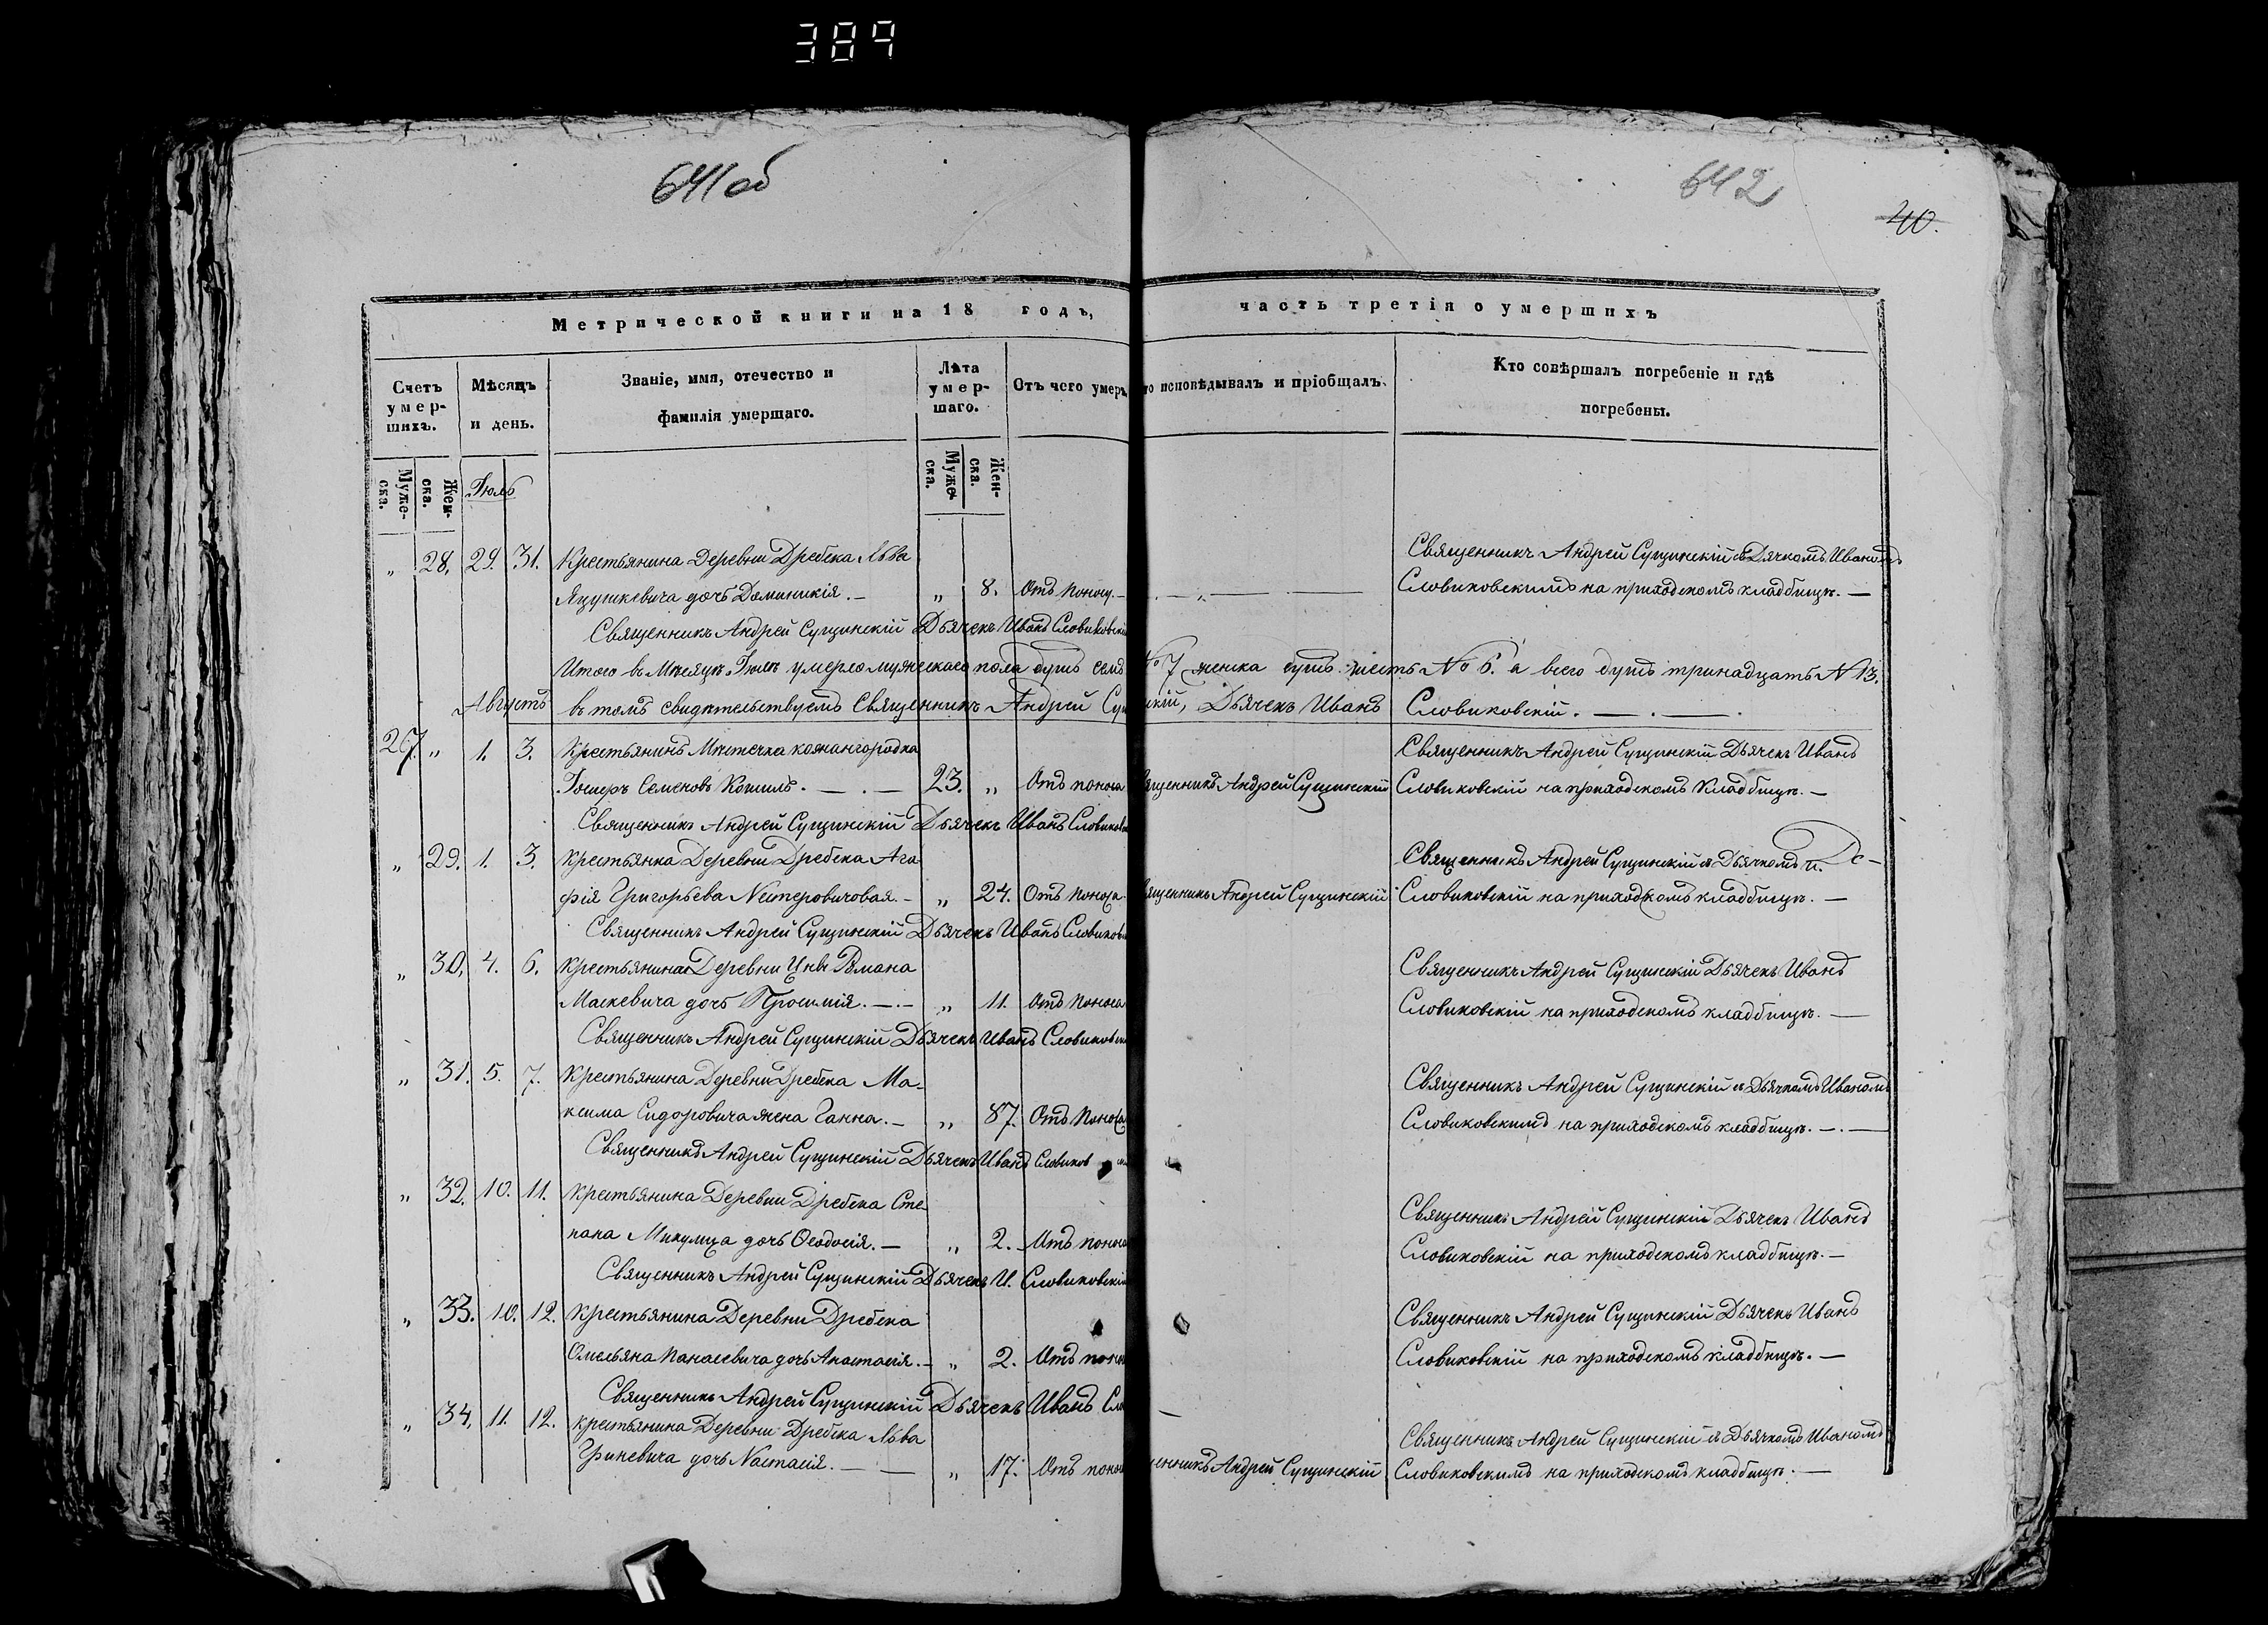 389
641об
642
40.
Метрической книги на 18 годъ, часть третія о умершихъ
Счетъ умер-шихъ.
Мѣсяцъ и день.
Званіе, имя, отечество и фамилія умершаго.
Лѣта умер-шаго.
Отъ чего умеръ
то исповѣдывалъ и пріобщалъ.
Кто совѣршалъ погребеніе и гдѣ погребены.
Муже-ска.
Жен-ска.
Іюль
Муже-ска.
Жен-ска.
„ 28. 29. 31. Крестьянина Деревни Дребска Льва Священникъ Андрей Сущинскій съ Дячкомъ Иваномъ
Яцушкевича дочь Доминикія. — „ 8. Отъ поносу. — Словиковскимъ на приходскомъ кладбищѣ. —
Священникъ Андрей Сущинскій Дьячекъ Иванъ Словиковскі
Итого въ Мѣсяцѣ Іюлѣ умерло мужескаго пола душъ семь № 7 женска душъ шесть № 6. а всего душъ тринадцать № 13.
Августъ въ томъ свидѣтельствуемъ Священникъ Андрей Сущ скій, Дьячекъ Иванъ Словиковскій. — . — .
27. „ 1. 3. Крестьянинъ Мѣстечка кожангородка Священникъ Андрей Сущинскій Дьячекъ Иванъ
Семеновъ Кошиль. — . — 23. „ Отъ поноса ященникъ Андрей Сущинскій Словиковскій на приходскомъ кладбищѣ. —
Священникъ Андрей Сущинскій Дьячекъ Иванъ Словиков
„ 29. 1. 3. Крестьянка Деревни Дребска Ага Священникъ Андрей Сущинскій съ Дьячкомъ И.
фія Григорьева Нестеровичовая. — „ 24. Отъ поноса ященникъ Андрей Сущинскій Словиковскій на приходскомъ кладбищѣ. —
Священникъ Андрей Сущинскій Дьячекъ Иванъ Словиков
„ 30. 4. 6. Крестьянина Деревни Цны Романа Священникъ Андрей Сущинскій Дьячекъ Иванъ
Маскевича дочь Просимія. — . — „ 11. Отъ поноса Словиковскій на приходскомъ кладбищѣ. —
Священникъ Андрей Сущинскій Дьячекъ Иванъ Словиковск
„ 31. 5. 7. Крестьянина Деревни Дребска Ма- Священникъ Андрей Сущинскій съ Дьячкомъ Иваномъ
ксима Сидоровича жена Ганна. — „ 87. Отъ поноса Словиковскимъ на приходскомъ кладбищѣ. — . —
Священникъ Андрей Сущинскій Дьячекъ Иванъ Словиков
„ 32. 10. 11. Крестьянина Деревни Дребска Сте Священникъ Андрей Сущинскій Дьячекъ Иванъ
пана Микулица дочь Ѳеодосія. — „ 2. Отъ поноса Словиковскій на приходскомъ кладбищѣ. —
Священникъ Андрей Сущинскій Дьячекъ И. Словиковскі
„ 33. 10. 12. Крестьянина Деревни Дребска Священникъ Андрей Сущинскій Дьячекъ Иванъ
Омельяна Панасевича дочь Анастасія. — „ 2. Отъ поно Словиковскій на приходскомъ кладбищѣ. —
Священникъ Андрей Сущинскій Дьячекъ Иванъ Сло
„ 34. 11. 12. Крестьянина Деревни Дребска Льва Священникъ Андрей Сущинскій съ Дьячкомъ Иваномъ
Гриневича дочь Настасія. — — „ 17. Отъ понос щенникъ Андрей Сущинскій Словиковскимъ на приходскомъ кладбищѣ. —